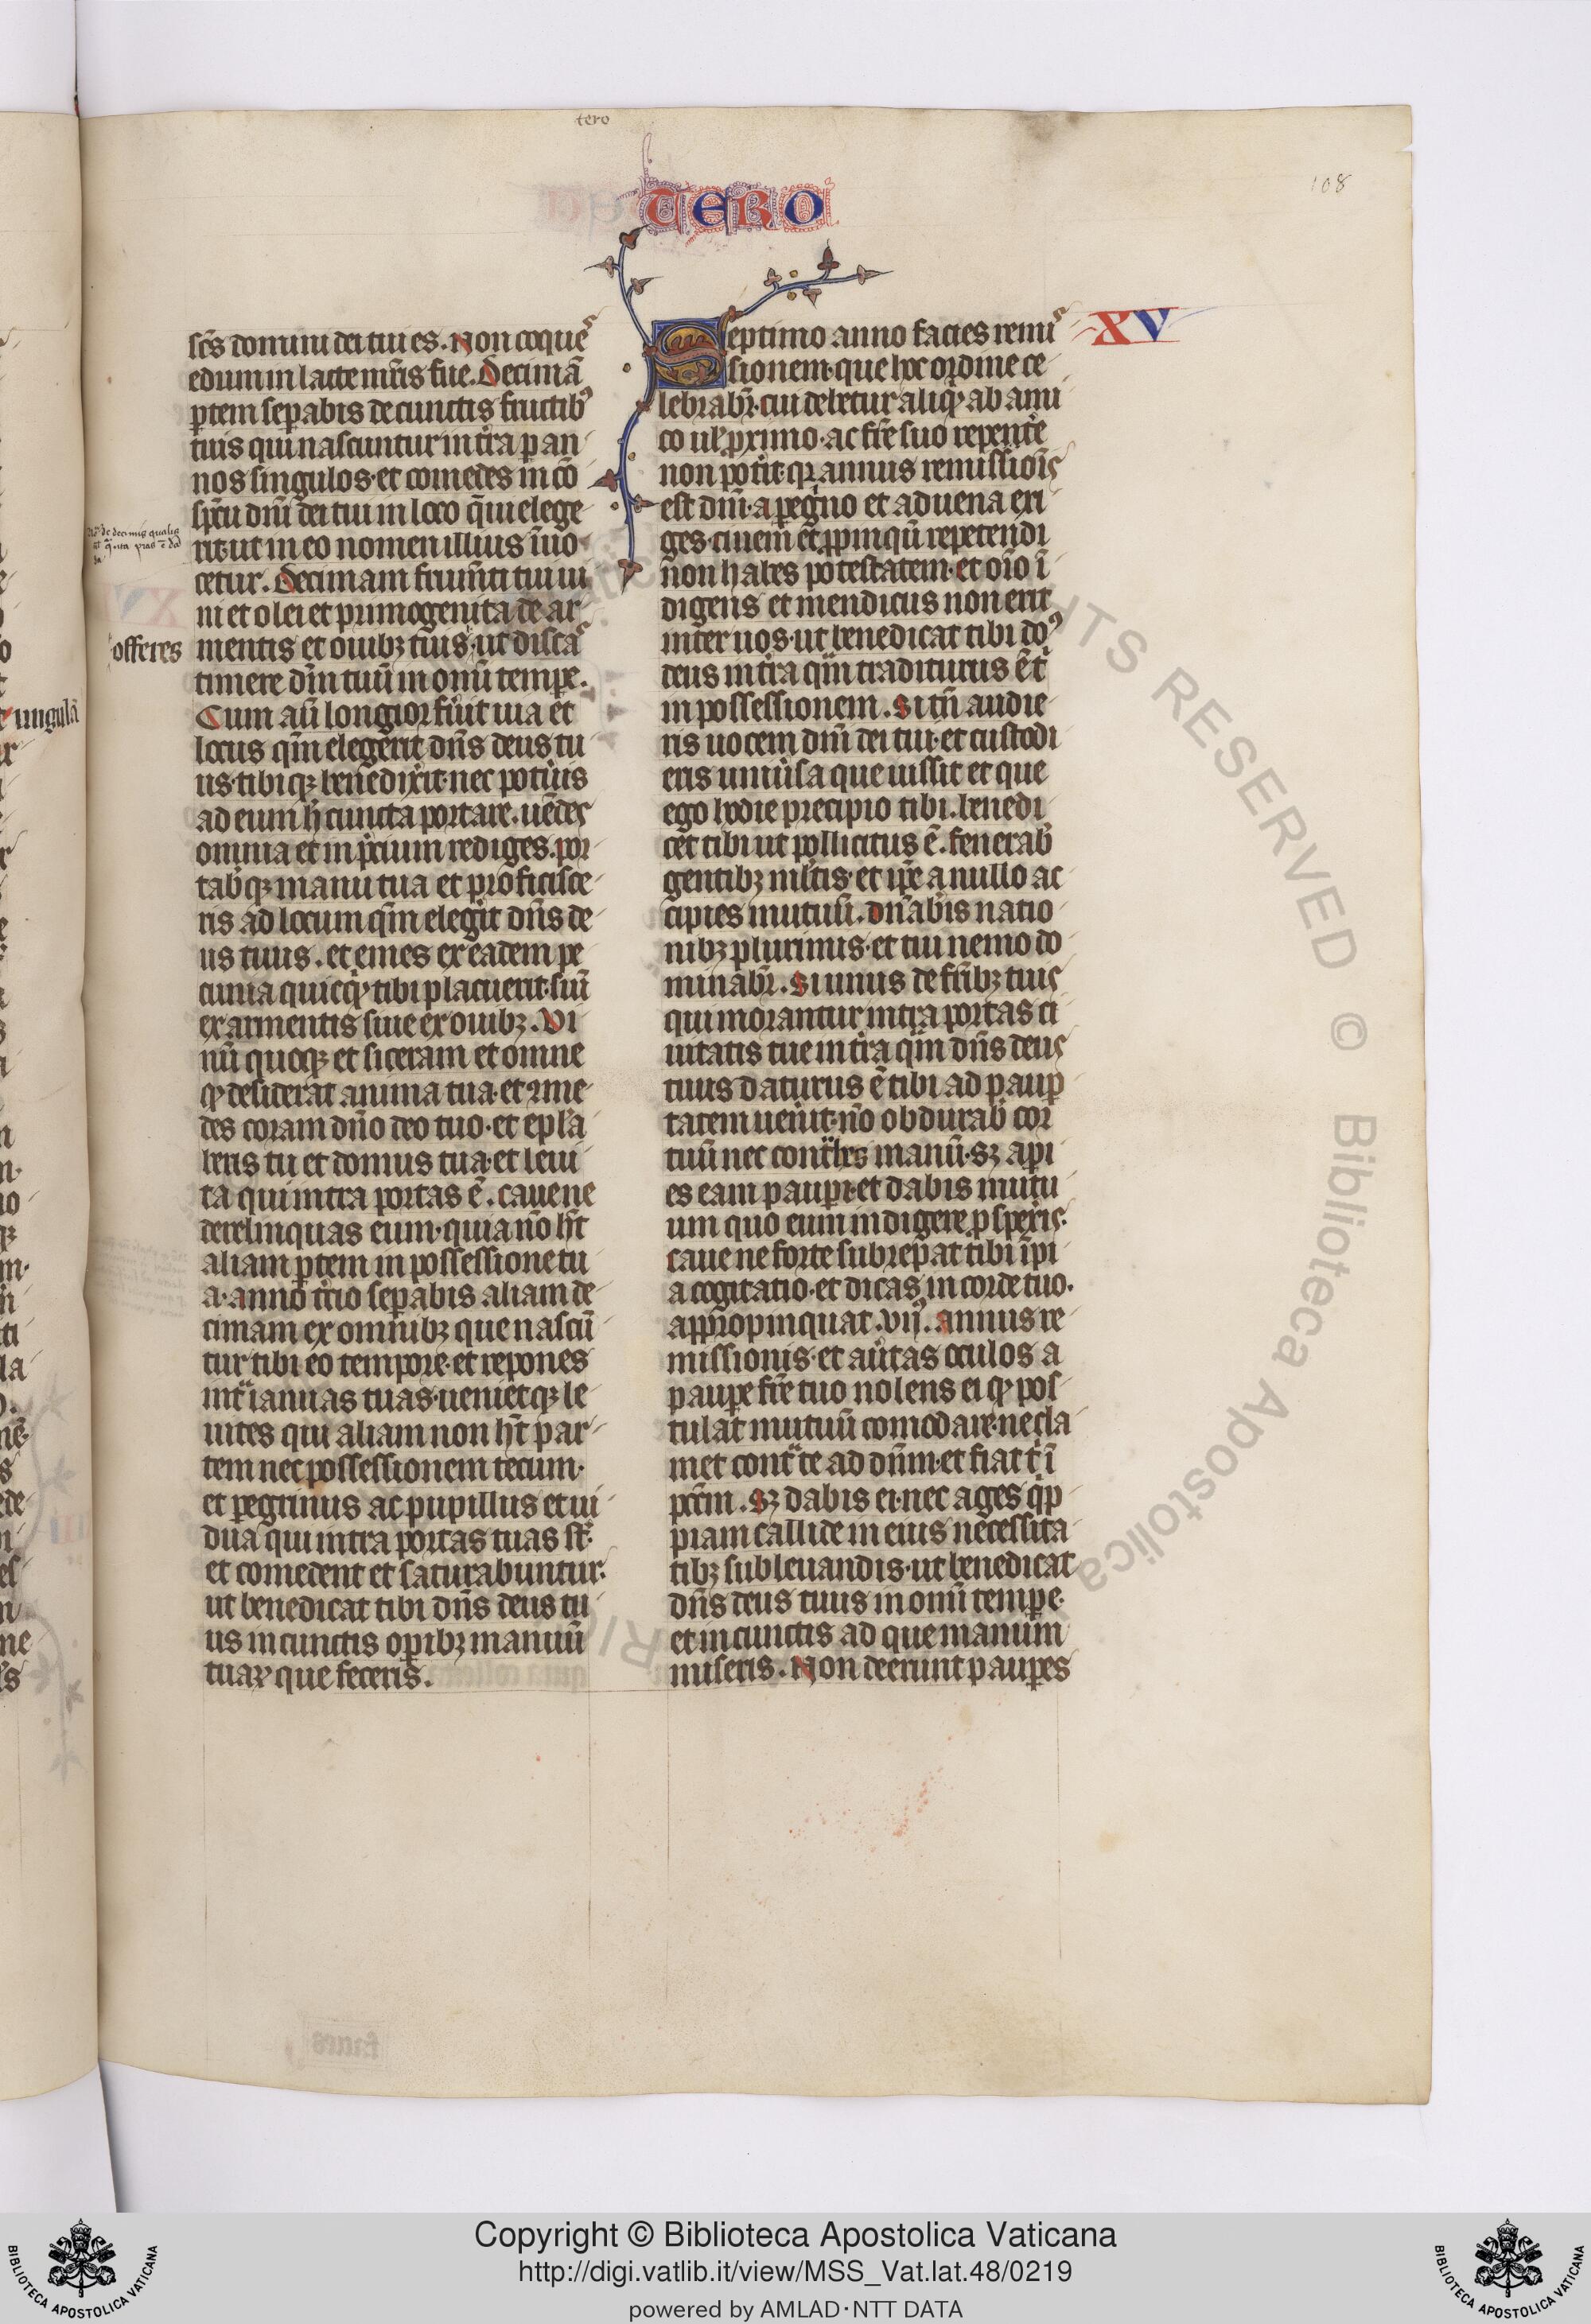 tero
TERO
108
scs domini dei tui es. Non coques
edum in lacte mr̄is sue. Decimā
ptem sepabis de cunctis fructibꝰ
tuis qui nascuntur in tr̄a p an
nos singulos· et comedes in cō
spc̄u dn̄i dei tui in loco q̄m elege
rit· ut in eo nomen illius īuo
cetur. Decimam frum̄ti tui ui
ni et olei et primogenita de ar
offeres
mentis et ouibꝫ tuis· ut discas
timere dn̄m tuū in omī tempe.
Cum aū longior fūit uia et
locus q̄m elegerit dn̄s deus tu
us· tibiqꝫ benedixit· nec potūis
ad eum h̄ cuncta portare. uēdes
omnia et in p̄cium rediges. por
tabꝰqꝫ manu tua et proficisce
ris ad locum q̄m elegit dn̄s de
us tuus. et emes ex eadem pe
cunia quicqꝫ tibi placuerit· siu̅
ex armentis siue ex ouibꝫ. Vi
nū quoqꝫ et siceram et omne
qꝫ desiderat anima tua· et ꝯme
des coram dn̄o deo tuo· et epla
beris tu et domus tua· et leui
ta qui intra portas ē. caue ne
derelinquas eum· quia nō ht̄
aliam ptem in possessione tu
a· anno tc̄io sepabis aliam de
cimam ex omnibꝫ que nascū
tur tibi eo tempore· et repones
int̄ ianuas tuas· uenietqꝫ le
uites qui aliam non ht̄ par
tem nec possessionem tecum·
et pegrinus ac pupillus et ui
dua qui intra portas tuas st̄·
et comedent et saturabuntur·
ut benedicat tibi dn̄s deus tu
us in cunctis opibꝫ manuū
tuaꝝ que feceris.
XV
Septimo anno facies remis
sionem· que hoc ordine ce
lebrabr̄· cui debetur aliqꝫ ab ami
co ul̄ pximo· ac fr̄e suo repete
non potit· qꝛ annus remissiois
est dn̄i· a pegno et aduena exi
ges· ciuem et ppinquū repetendi
non habes potestatem· et oīo ī
digens et mendicus non erit
inter uos· ut benedicat tibi doꝰ
deus in tr̄a q̄m traditurus ē t̄
in possessionem. Si tn̄ audie
ris uocem dn̄i dei tui· et custodi
eris uniūsa que iussit et que
ego hodie precipio tibi. benedi
cet tibi ut pollicitus ē. fenerabꝰ
gentibꝫ mltis· et ipe a nullo ac
cipies mutuū. dn̄abis natio
nibꝫ plurimis· et tui nemo do
minabr̄. Si unus de fr̄ibꝫ tuis
qui morantur intra portas ci
uitatis tue in tr̄a q̄m dn̄s deus
tuus daturus ē tibi ad paup
tatem uen̄it· nō obdurabꝰ cor
tuū nec contˣhes manū· sꝫ api
es eam paupi· et dabis mutu
um quo eum indigere pspexis·
caue ne forte subrepat tibi īpi
a cogitatio· et dicas in corde tuo·
appropinquat .vij. annus re
missionis· et aūtas oculos a
paupe fr̄e tuo nolens ei qꝫ pos
tulat mutuū comodare· ne cla
met contˣ te ad dn̄m· et fiat t̄ ī
pcc̄m. Sꝫ dabis ei· nec ages q̄p
piam callide in eius necessita
tibꝫ subleuandis· ut benedicat
dn̄s deus tuus in omī tempe·
et in cunctis ad que manum
miseris. Non deerunt paupes
ungulā
RIGHTS RESERVED © Biblioteca Apostolica
Copyright © Biblioteca Apostolica Vaticana
http://digi.vatlib.it/view/MSS_Vat.lat.48/0219
powered by AMLAD·NTT DATA
BIBLIOTECA APOSTOLICA VATICANA
BIBLIOTECA APOSTOLICA VATICANA